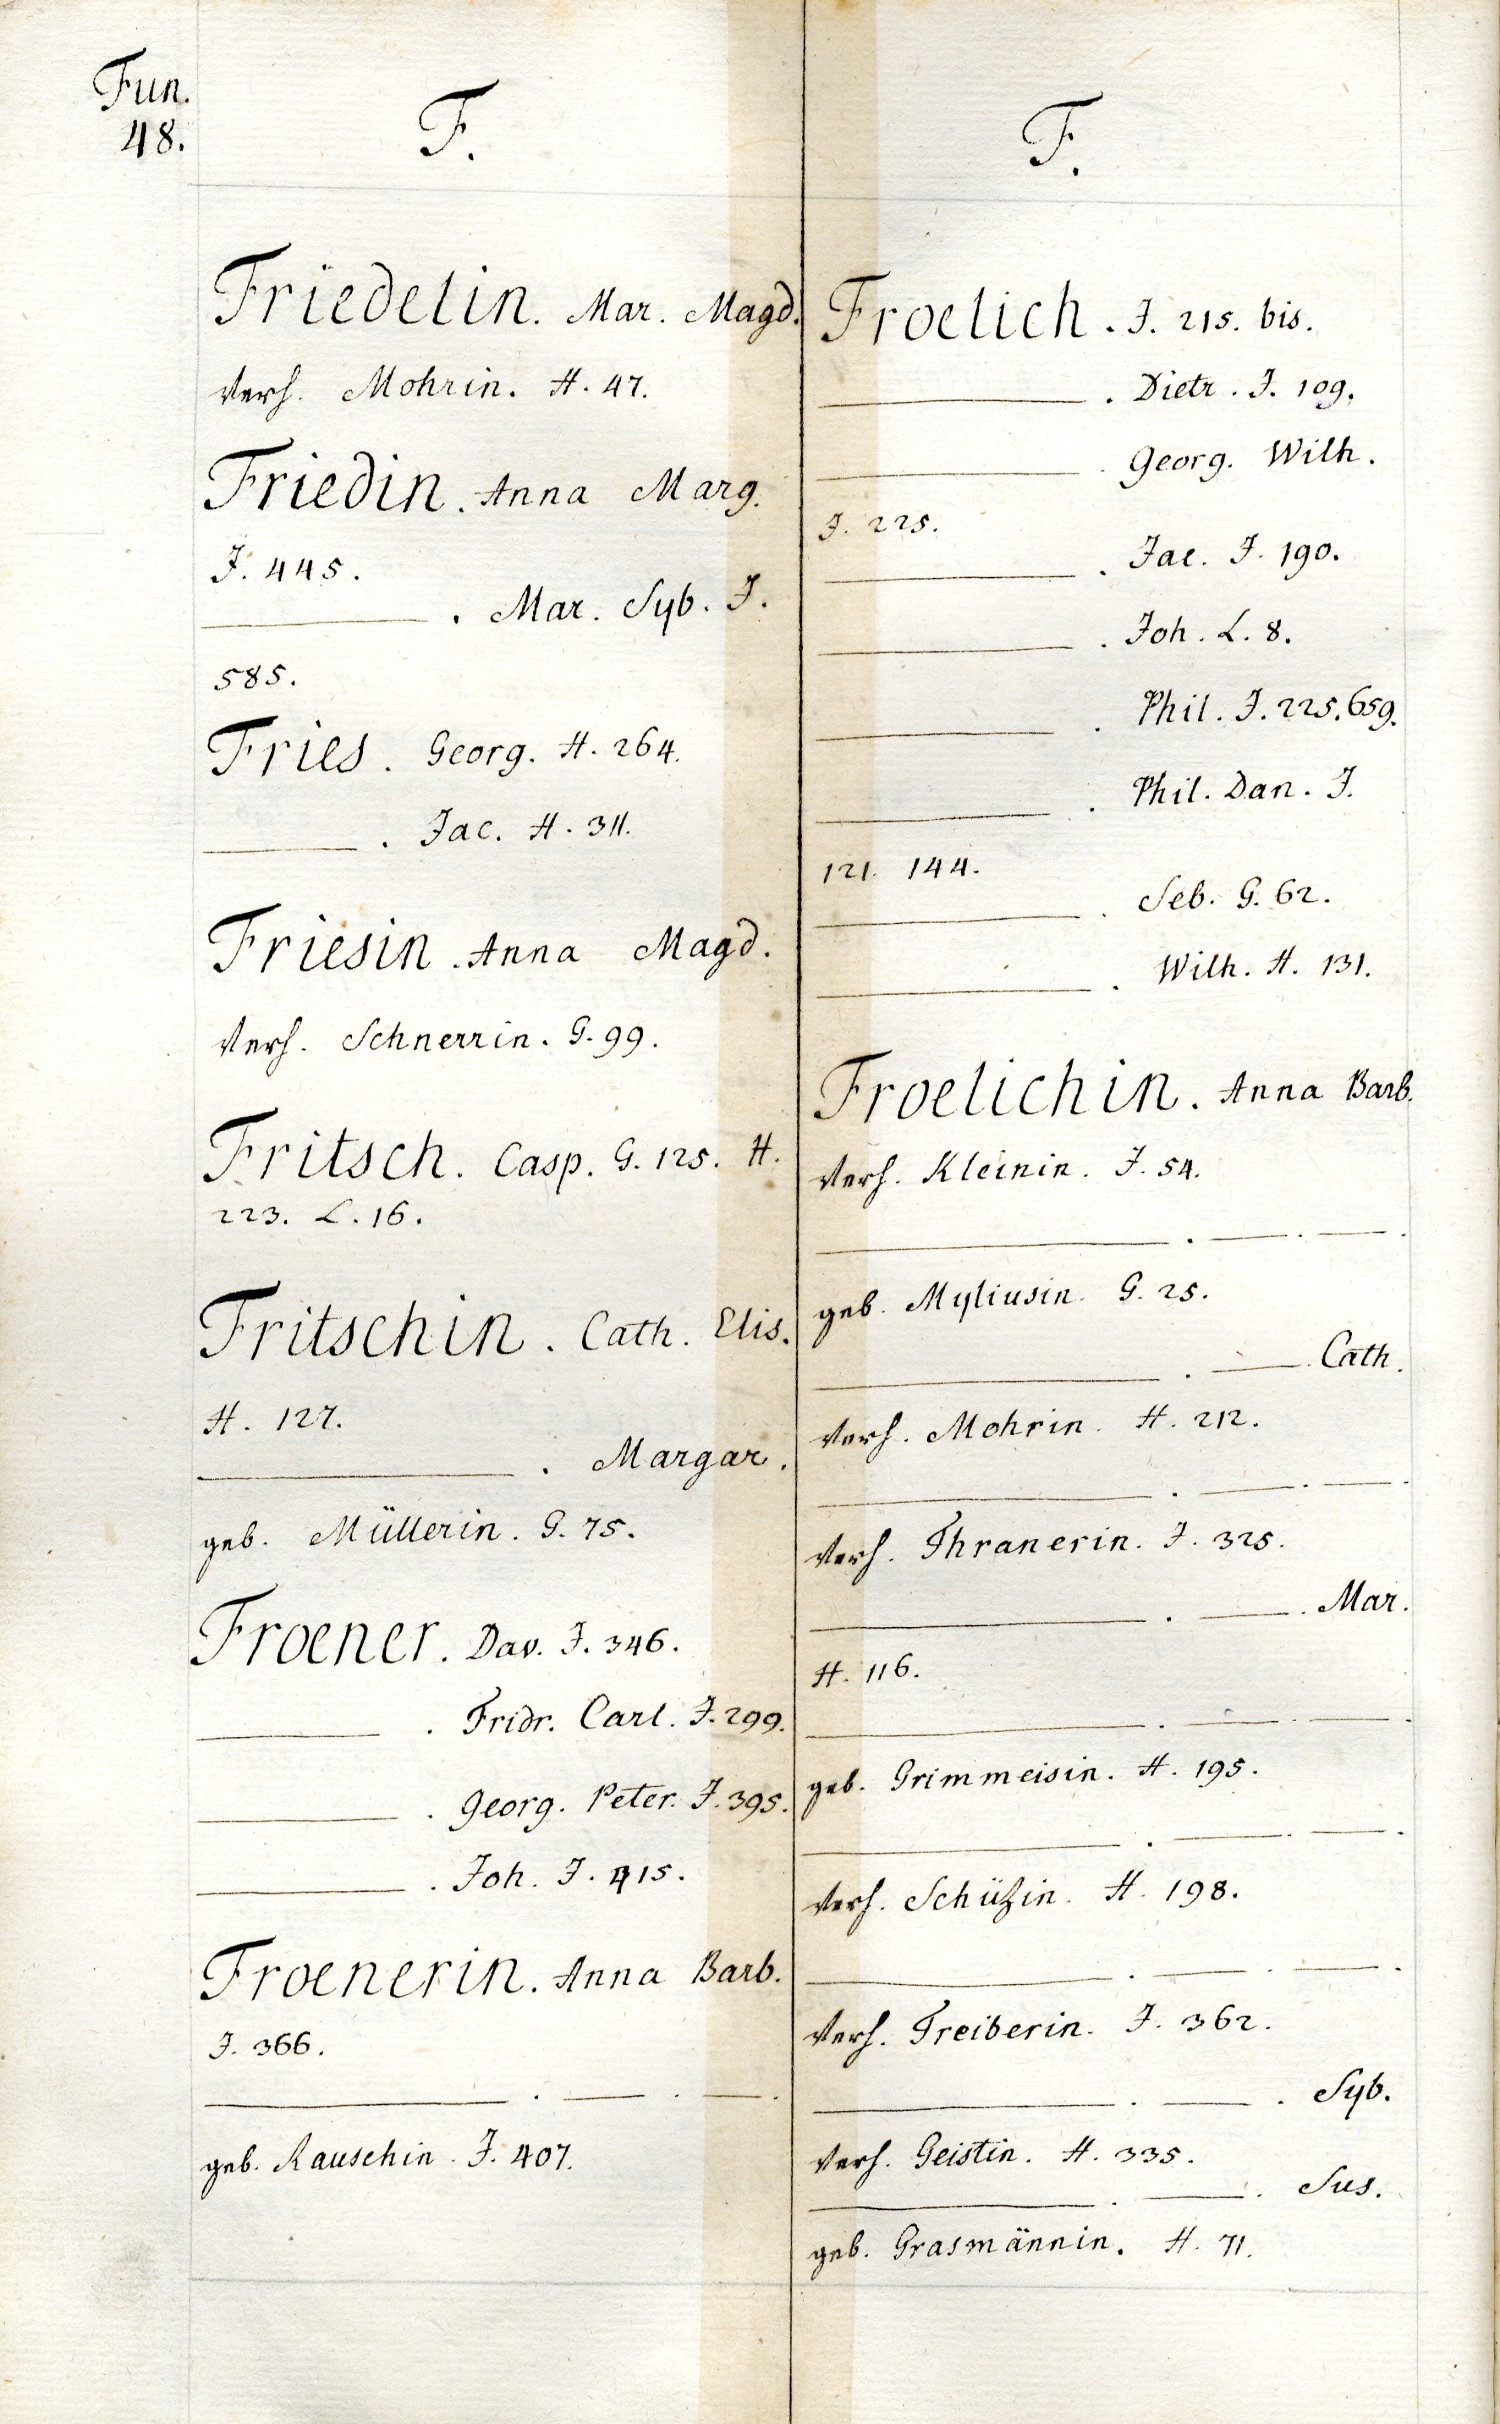 Fun.
48.
F.
Friedelin. Mar. Magd.
verh. Mohrin. H. 47.
Friedin. Anna Marg.
J. 445.
———. Mar. Syb. J.
585.
Fries. Georg. H. 264.
———. Jac. H. 311.
Friesin. Anna Magd.
verh. Schnerrin. G. 99.
Fritsch. Casp. G. 125. H.
223. L. 16.
Fritschin. Cath. Elis.
H. 127.
———. Margar.
geb. Müllerin. G. 75.
Froener. Dav. J. 346.
———. Fridr. Carl. J. 299.
———. Georg. Peter. J. 395.
———. Joh. J. 415.
Froenerin. Anna Barb.
J. 366.
———. ——. ——.
geb. Rauschin. J. 407.
F.
Froelich. J. 215. bis.
———. Dietr. J. 109.
———. Georg. Wilh.
J. 225.
———. Jac. J. 190.
———. Joh. L. 8.
———. Phil. J. 225. 659.
———. Phil. Dan. J.
121. 144.
———. Seb. G. 62.
———. Wilh. H. 131.
Froelichin. Anna Barb.
verh. Kleinin. J. 54.
———. ——. ——.
geb. Myliusin. G. 25.
———. ——. Cath.
verh. Mohrin. H. 212.
———. ——. ——.
verh. Thranerin. J. 325.
———. ——. Mar.
H. 116.
———. ——. ——.
geb. Grimmeisin. H. 195.
———. ——. ——.
verh. Schüzin. H. 198.
———. ——. ——.
verh. Treiberin. J. 362.
———. ——. Syb.
verh. Geistin. H. 335.
———. ——. Sus.
geb. Grasmännin. H. 71.